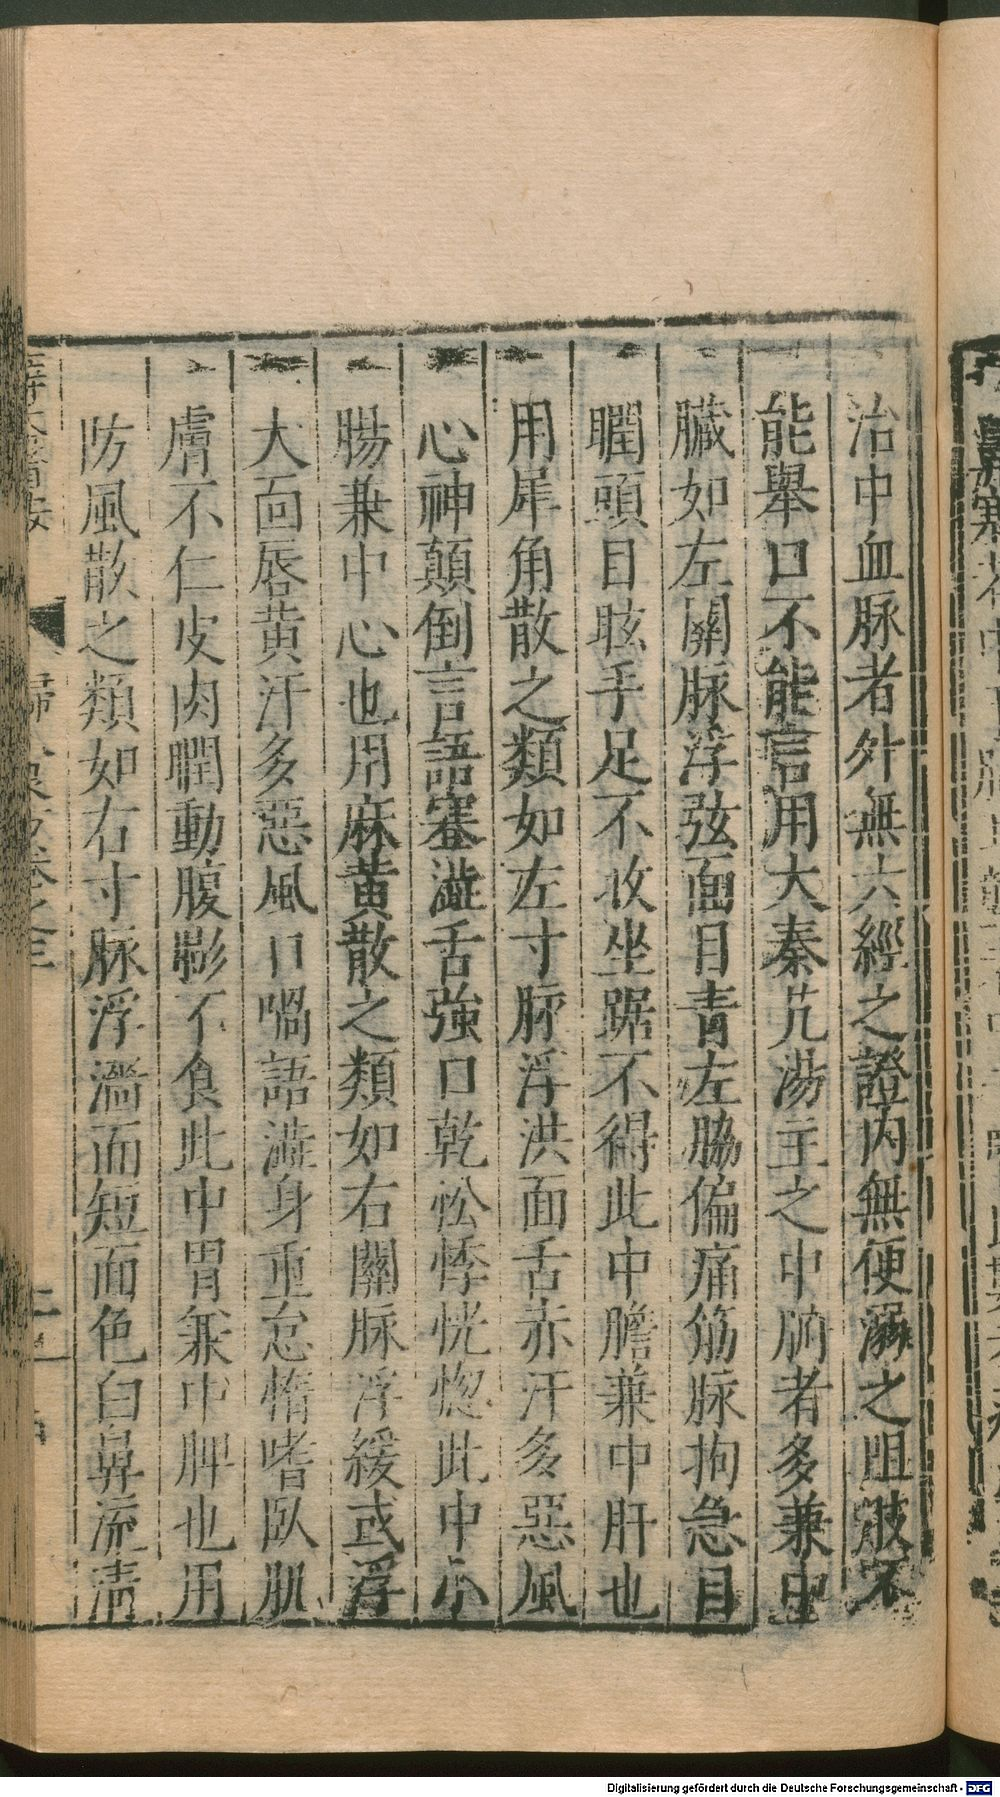 治中血脉者外無六經之證內無便溺之阻肢不
能舉口不能言用大秦艽湯主之中腑者多兼中
臟如左關脉浮弦面目青左脇偏痛筋脉拘急目
瞤頭目眩手足不收坐踞不得此中膽兼中肝也
用犀角散之類如左寸脉浮洪面舌赤汗多惡風
心神顛倒言語蹇澁舌強口乾忪悸恍惚此中小
腸兼中心也用麻黃散之類如右關脉浮緩或浮
大面唇黃汗多惡風口喎語澁身重怠惰嗜臥肌
膚不仁皮肉瞤動腹膨不食此中胃兼中脾也用
防風散之類如右寸脉浮濇而短面色白鼻流清
卷之三
Digitalisierung gefördert durch die Deutsche Forschungsgemeinschaft - DFG